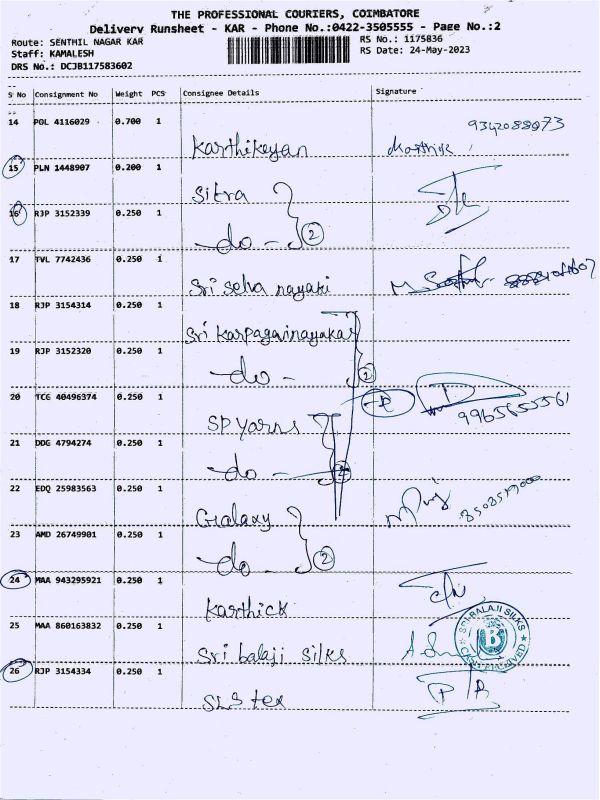 THE PROFESSIONAL COURIERS, COIMBATORE
Delivery Runsheet - KAR - Phone No.:0422-3505555 - Page No.:2
Route: SENTHIL NAGAR KAR
RS No.: 1175836
Staff: KAMALESH
RS Date: 24-May-2023
DRS No.: DCJB117583602
S No Consignment No Weight PCS Consignee Details Signature
14 POL 4116029 0.700 1
Karthikeyan Karthik
15 PLN 1448907 0.200 1
Sitra
16 RJP 3152339 0.250 1
-do- 2
17 TVL 7742436 0.250 1
Sri Selva nayaki
18 RJP 3154314 0.250 1
Sri karpagavinayakar
19 RJP 3152320 0.250 1
-do- 2
20 TCG 40496374 0.250 1
SP yarns
21 DDG 4794274 0.250 1
-do- 2
22 EDQ 25983563 0.250 1
Galaxy
23 AMD 26749901 0.250 1
-do- 2
24 MAA 943295921 0.250 1
Karthick
25 MAA 860163832 0.250 1
Sri balaji silks
SRI BALAJI SILKS
B
26 RJP 3154334 0.250 1
SLS tex